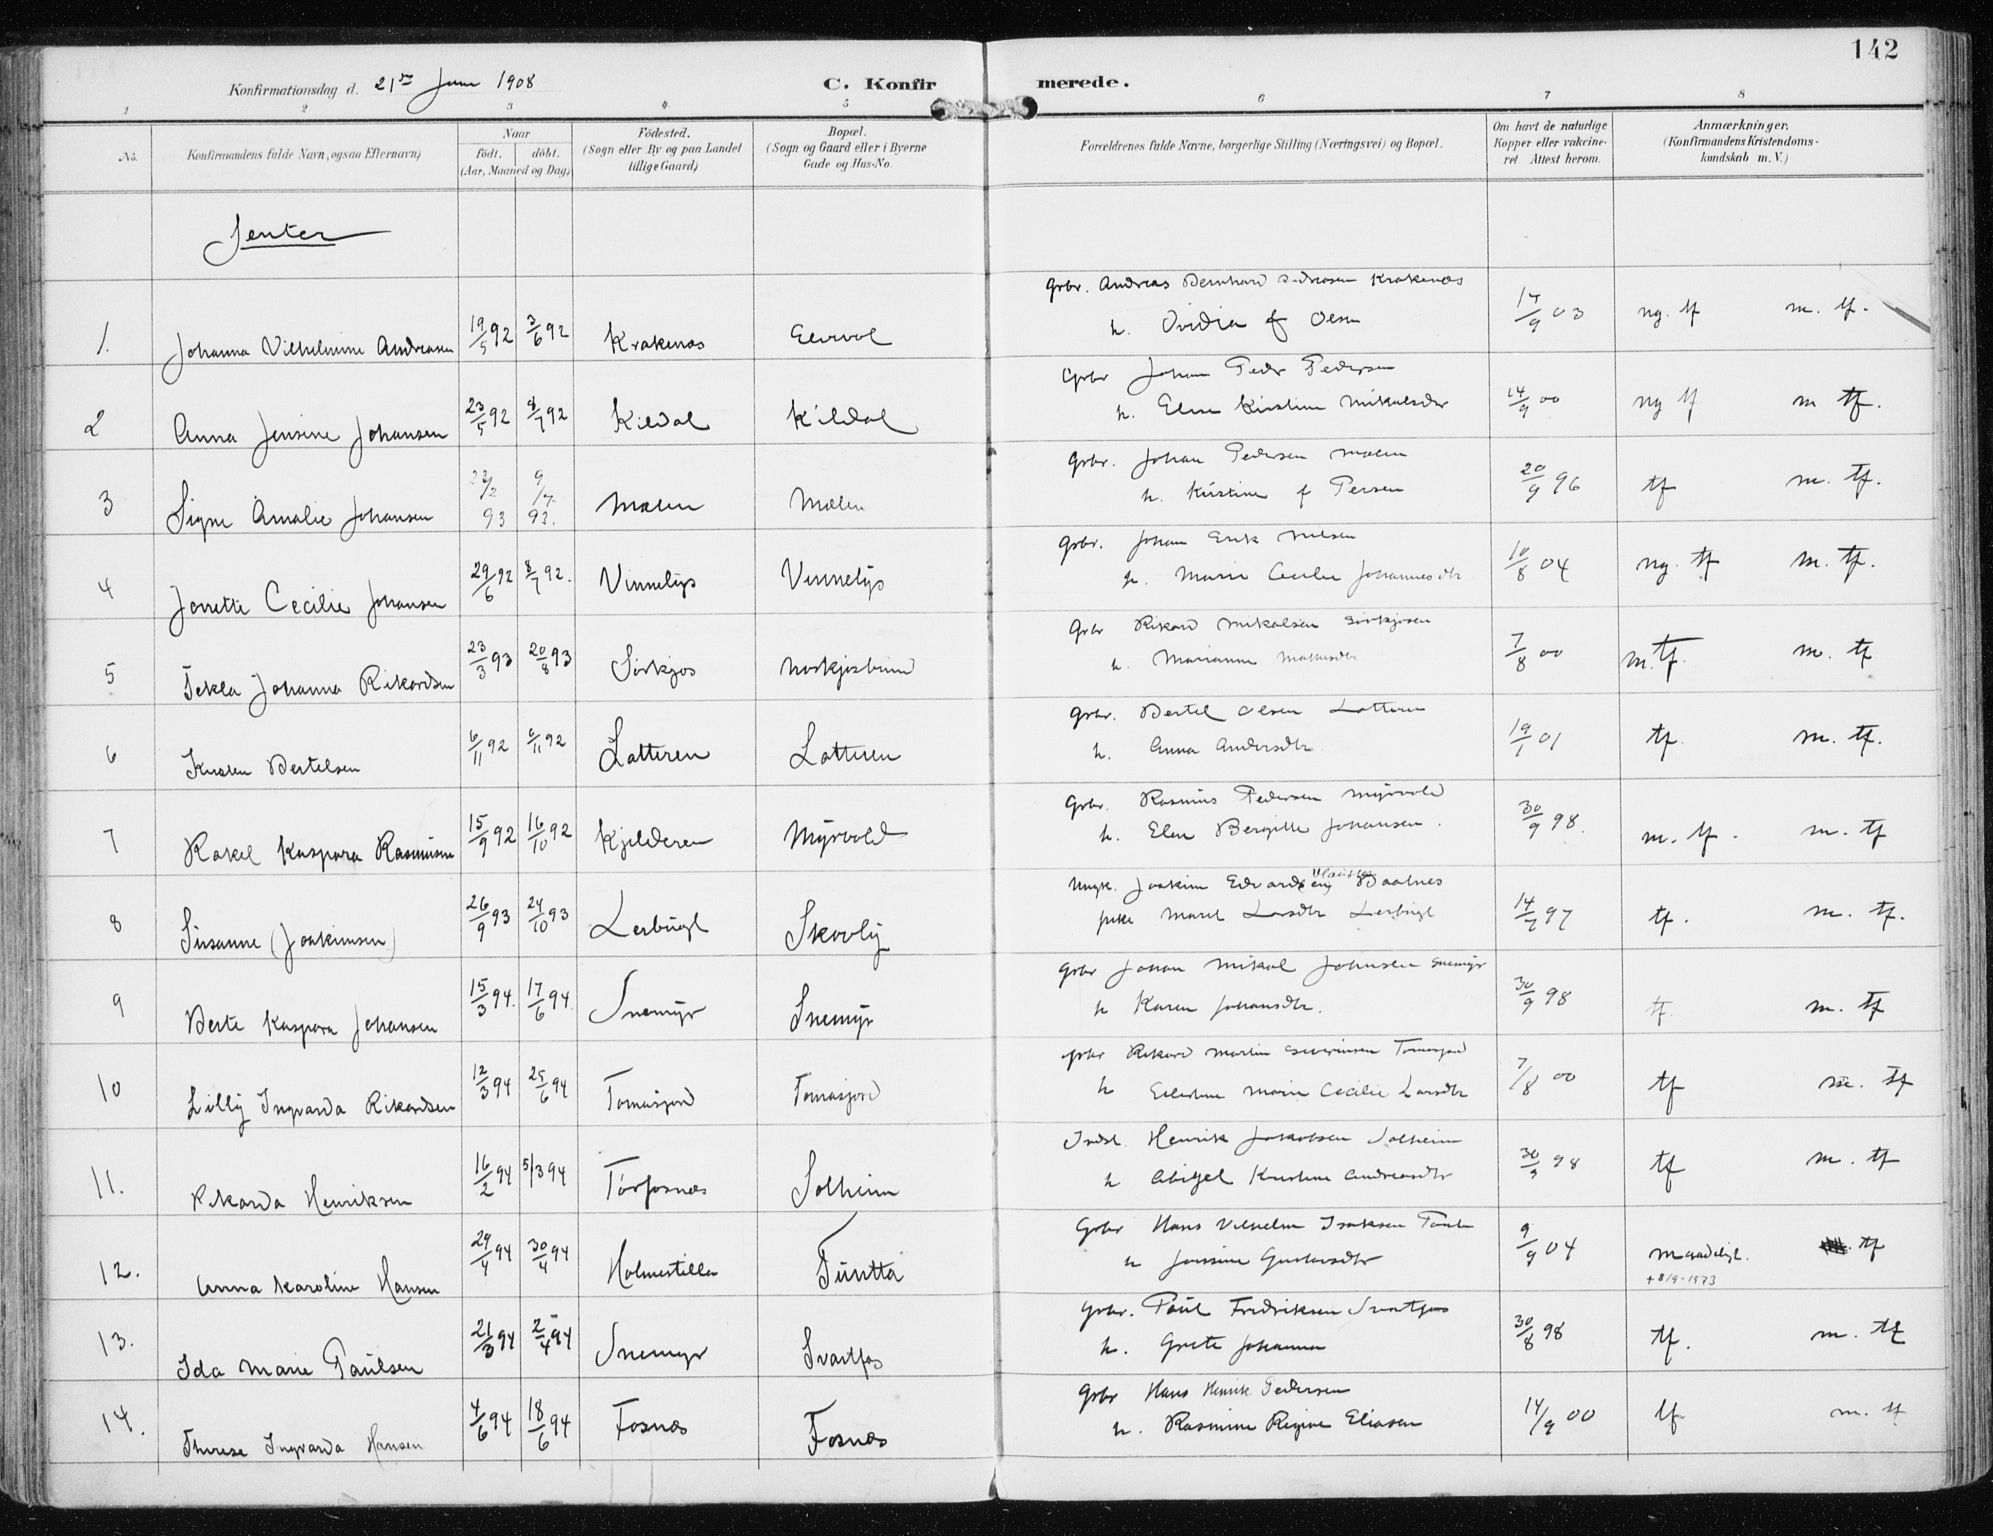 142
Konfirmationsdag d. 21de Juni 1908 C. Konfirmerede.
1 2 3 4 5 6 7 8
No.
Konfirmandens fulde Navn, ogsaa Efternavn)
Naar
födt. döbt.
(Aar, Maaned og Dag)
Födested.
(Sogn eller By og paa Landet
tillige Gaard)
Bopæl.
(Sogn og Gaard eller i Byerne
Gade og Hus-No.
Forældrenes fulde Navne, borgerlige Stilling (Næringsvei) og Bopæl.
Om havt de naturlige
Kopper eller vakcine-
ret Attest herom.
Anmærkninger.
(Konfirmandens Kristendoms-
kundskab m. V.)
Jenter
Grbr. Andreas Bernhard Krakenæs
1. Johanna Vilhelmine Andreasen 19/5 92 3/6 92 Krakenæs Elvevol h. Ovidia f Olsen 17/9 03 ng. tf m. tf.
Grbr Johan Peder Pedersen
2 Anna Jensine Johansen 23/5 92 8/7 92 Kildal Kildal h. Elen Kirstine Mikalsdtr 14/9 00 ng tf m tf.
Grbr. Johan Pedersen Mælen
3 Signe Amalie Johansen 23/2 93 9/7 93. Mælen Mælen h. Kristine f Persen 20/9 96 tf m. tf.
Grbr. Johan Erik Nilsen
4 Jonette Cecilie Johansen 29/6 92 8/7 92. Vinnelys Vinnelys h. Marie Cecilie Johannesdtr 10/8 04 ng. tf m. tf.
Grbr Rikard Mikalsen Sörkjosen
5 Tekla Johanna Rikardsen 23/3 93 20/8 93 Sörkjos Norkjosbund h. Marianne 7/8 00 m. tf. m. tf
Grbr. Bertel Olsen Latteren
6 Kirsten Bertelsen 6/11 92 6/11 92 Latteren Latteren h. Anna Andersdtr. 19/1 01 tf. m. tf.
Grbr. Rasmus Pedersen Myrvold
7 Rakel Kaspara Rasmusen 15/9 92 16/10 92 Kjelderen Myrvold h. Elen Bergitte Johansen. 30/9 98. m. tf. m. tf
Ungk. Joakim Edvard
8 Susanne (Joakimsen) 26/9 93 24/10 93 Lerbugt Skovly pike Maret Larsdtr Lerbugt 97 tf. m. tf.
Grbr Johan Mikal Johnsen Snemyr
9 Berte Kaspara Johansen 15/3 94. 17/6 94. Snemyr Snemyr h Karen Johansdtr. 30/9 98 tf. m. tf
Grbr Rikard Martin Severinsen Tomasjord
10 Lilly Ingvarda Rikardsen 12/3 94 25/6 94 Tomasjord Tomasjord h Ellertine Marie Cecilie Larsdtr 7/8 00 tf m. tf
Indst. Henrik Jakobsen Solheim
11. Rikarda Henriksen 16/2 94 5/3 94 Torfosnæs Solheim h Abigael Kristine Andreasdtr 30/9 98 tf m. tf
Grbr Hans Vilhelm Isaksen
12. Anna Karoline Hansen 29/4 94 30/4 94 Holmestilla Tuntta h Jonsine Gustavsdtr 9/9 04 Maadelig. tf
+ 8/9-1973
Grbr. Paul Fredriksen Svartfos
13. Ida Marie Paulsen 21/3 94 2/4 94 Snemyr Svartfos h. Grete Johanna 30/8 98 tf. m. tf
Grbr Hans Henrik Pedersen
14. Therese Ingvarda Hansen 4/6 94 18/6 94 Fosnæs Fosnæs h. Rasmine Regine Eliasen 14/9 00 tf m. tf